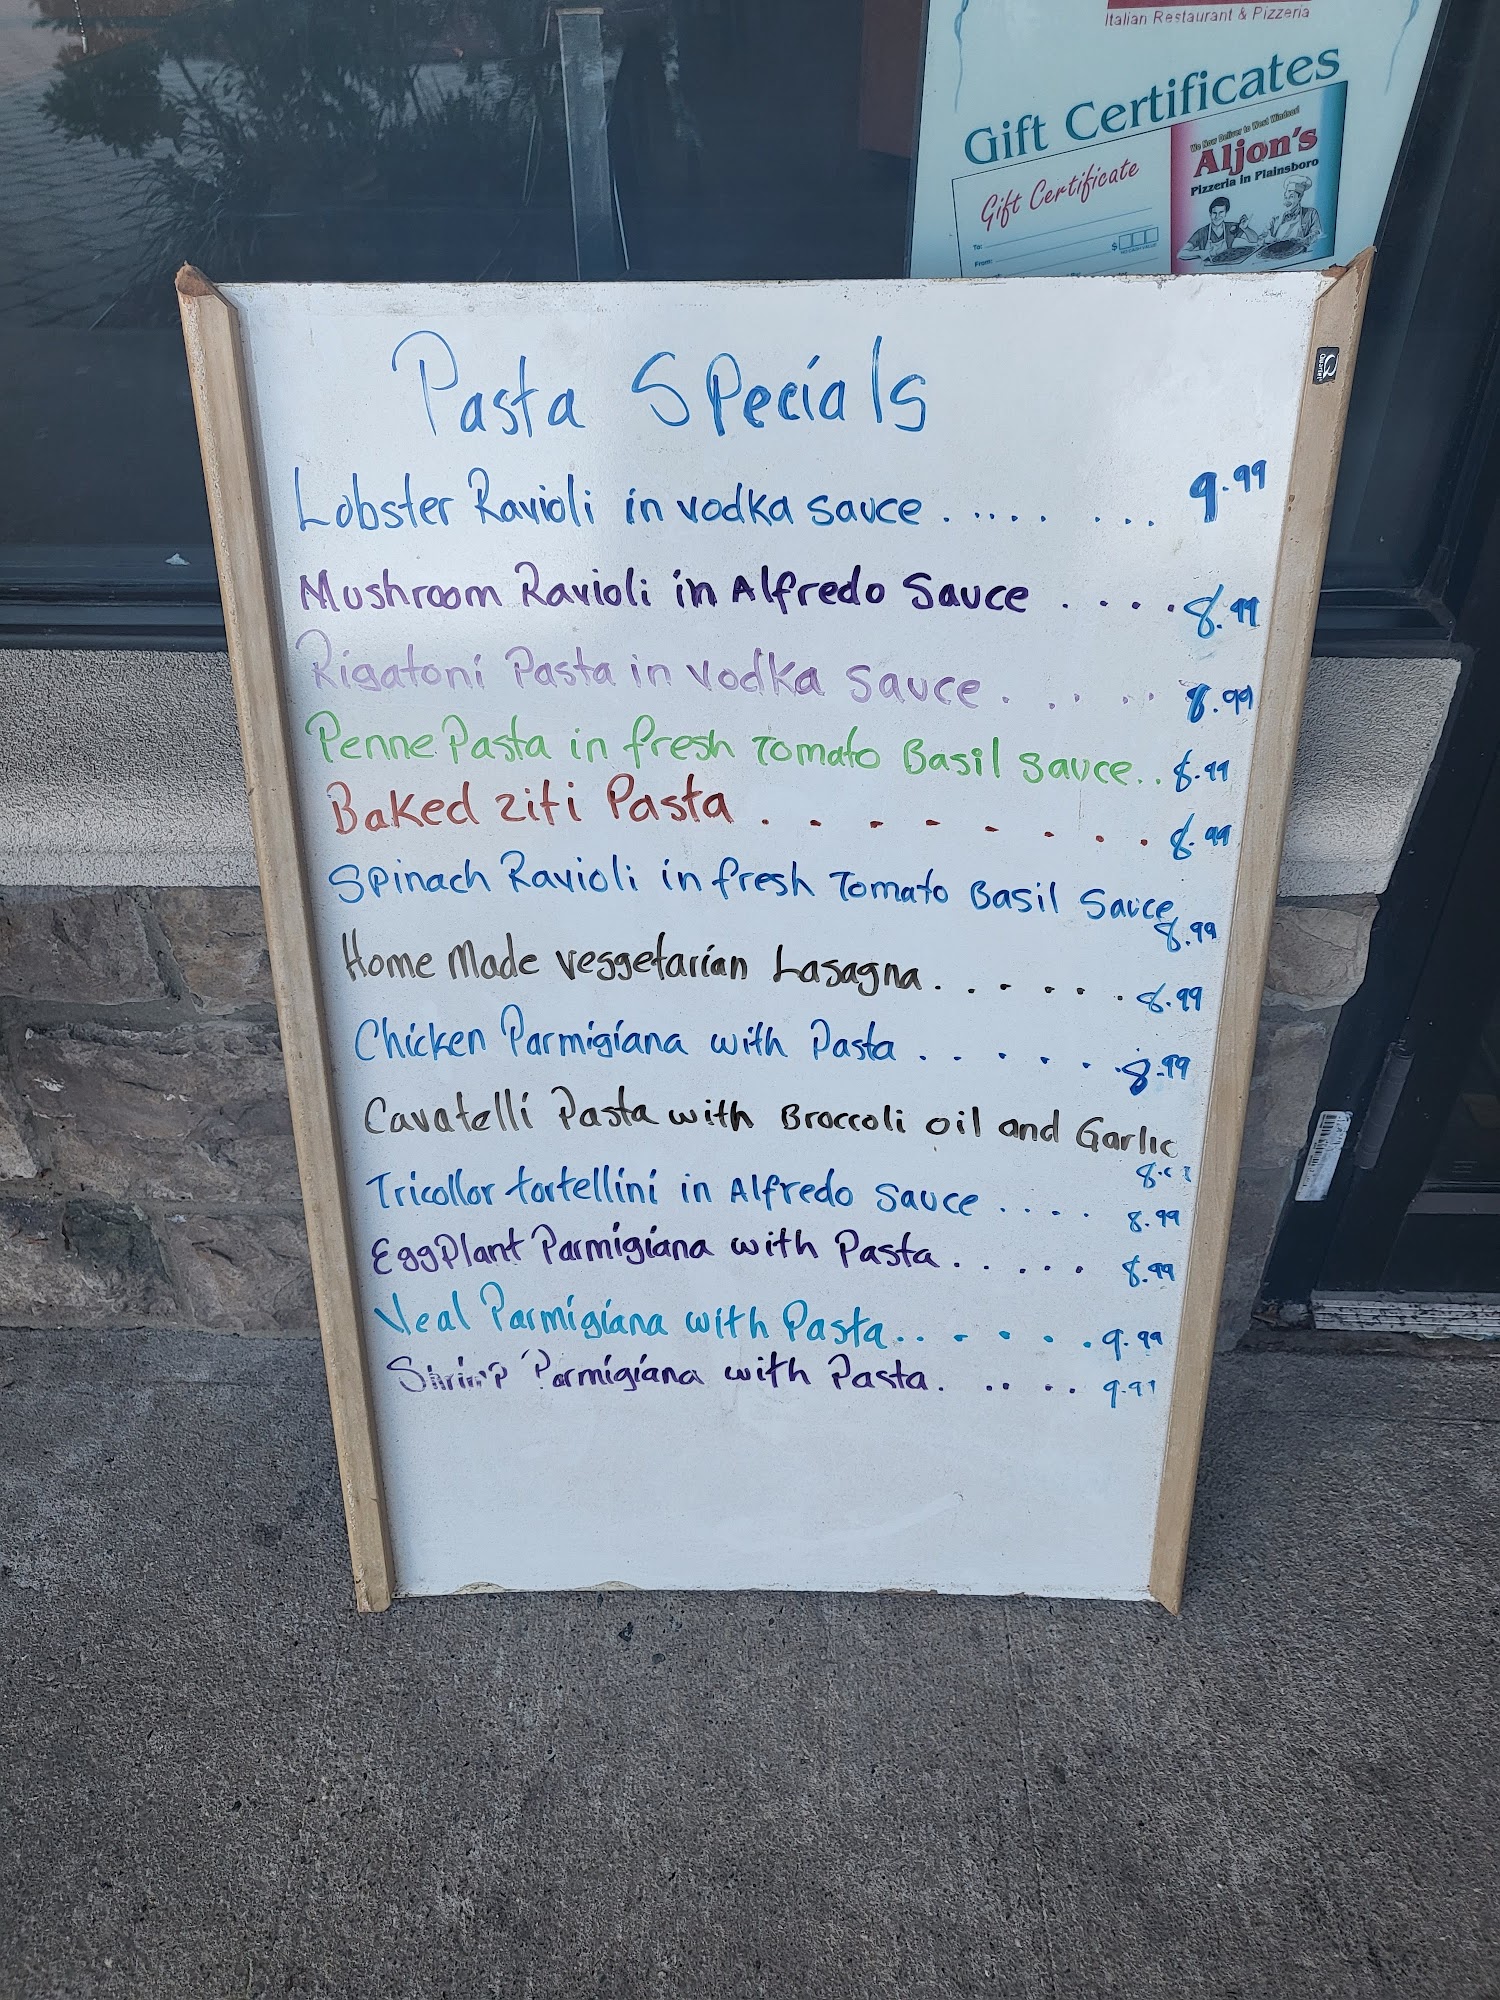 Italian Restaurant & Pizzeria
Gift Certificates
Gift Certificate
To:
From:
$
We Now Deliver to West Windsor!
Aljon's
Pizzeria in Plainsboro
Pasta Specials
Lobster Ravioli in vodka sauce . ..... . ... 9.99
Mushroom Ravioli in Alfredo Sauce . . . . 8.99
Rigatoni Pasta in vodka sauce . . . . . 8.99
Penne Pasta in fresh Tomato Basil sauce.. 8.99
Baked ziti Pasta . . . . . . . . 8.99
Spinach Ravioli in fresh Tomato Basil Sauce
8.99
Home Made veggetarian Lasagna . . . . . . 8.99
Chicken Parmigiana with Pasta . . . . . . 8.99
Cavatelli Pasta with Broccoli oil and Garlic
Tricollor tortellini in Alfredo sauce . . . . 8.99
EggPlant Parmigiana with Pasta . . . . . 8.99
Veal Parmigiana with Pasta . . . . . . 9.99
Shrimp Parmigiana with Pasta. . . . . 9.99